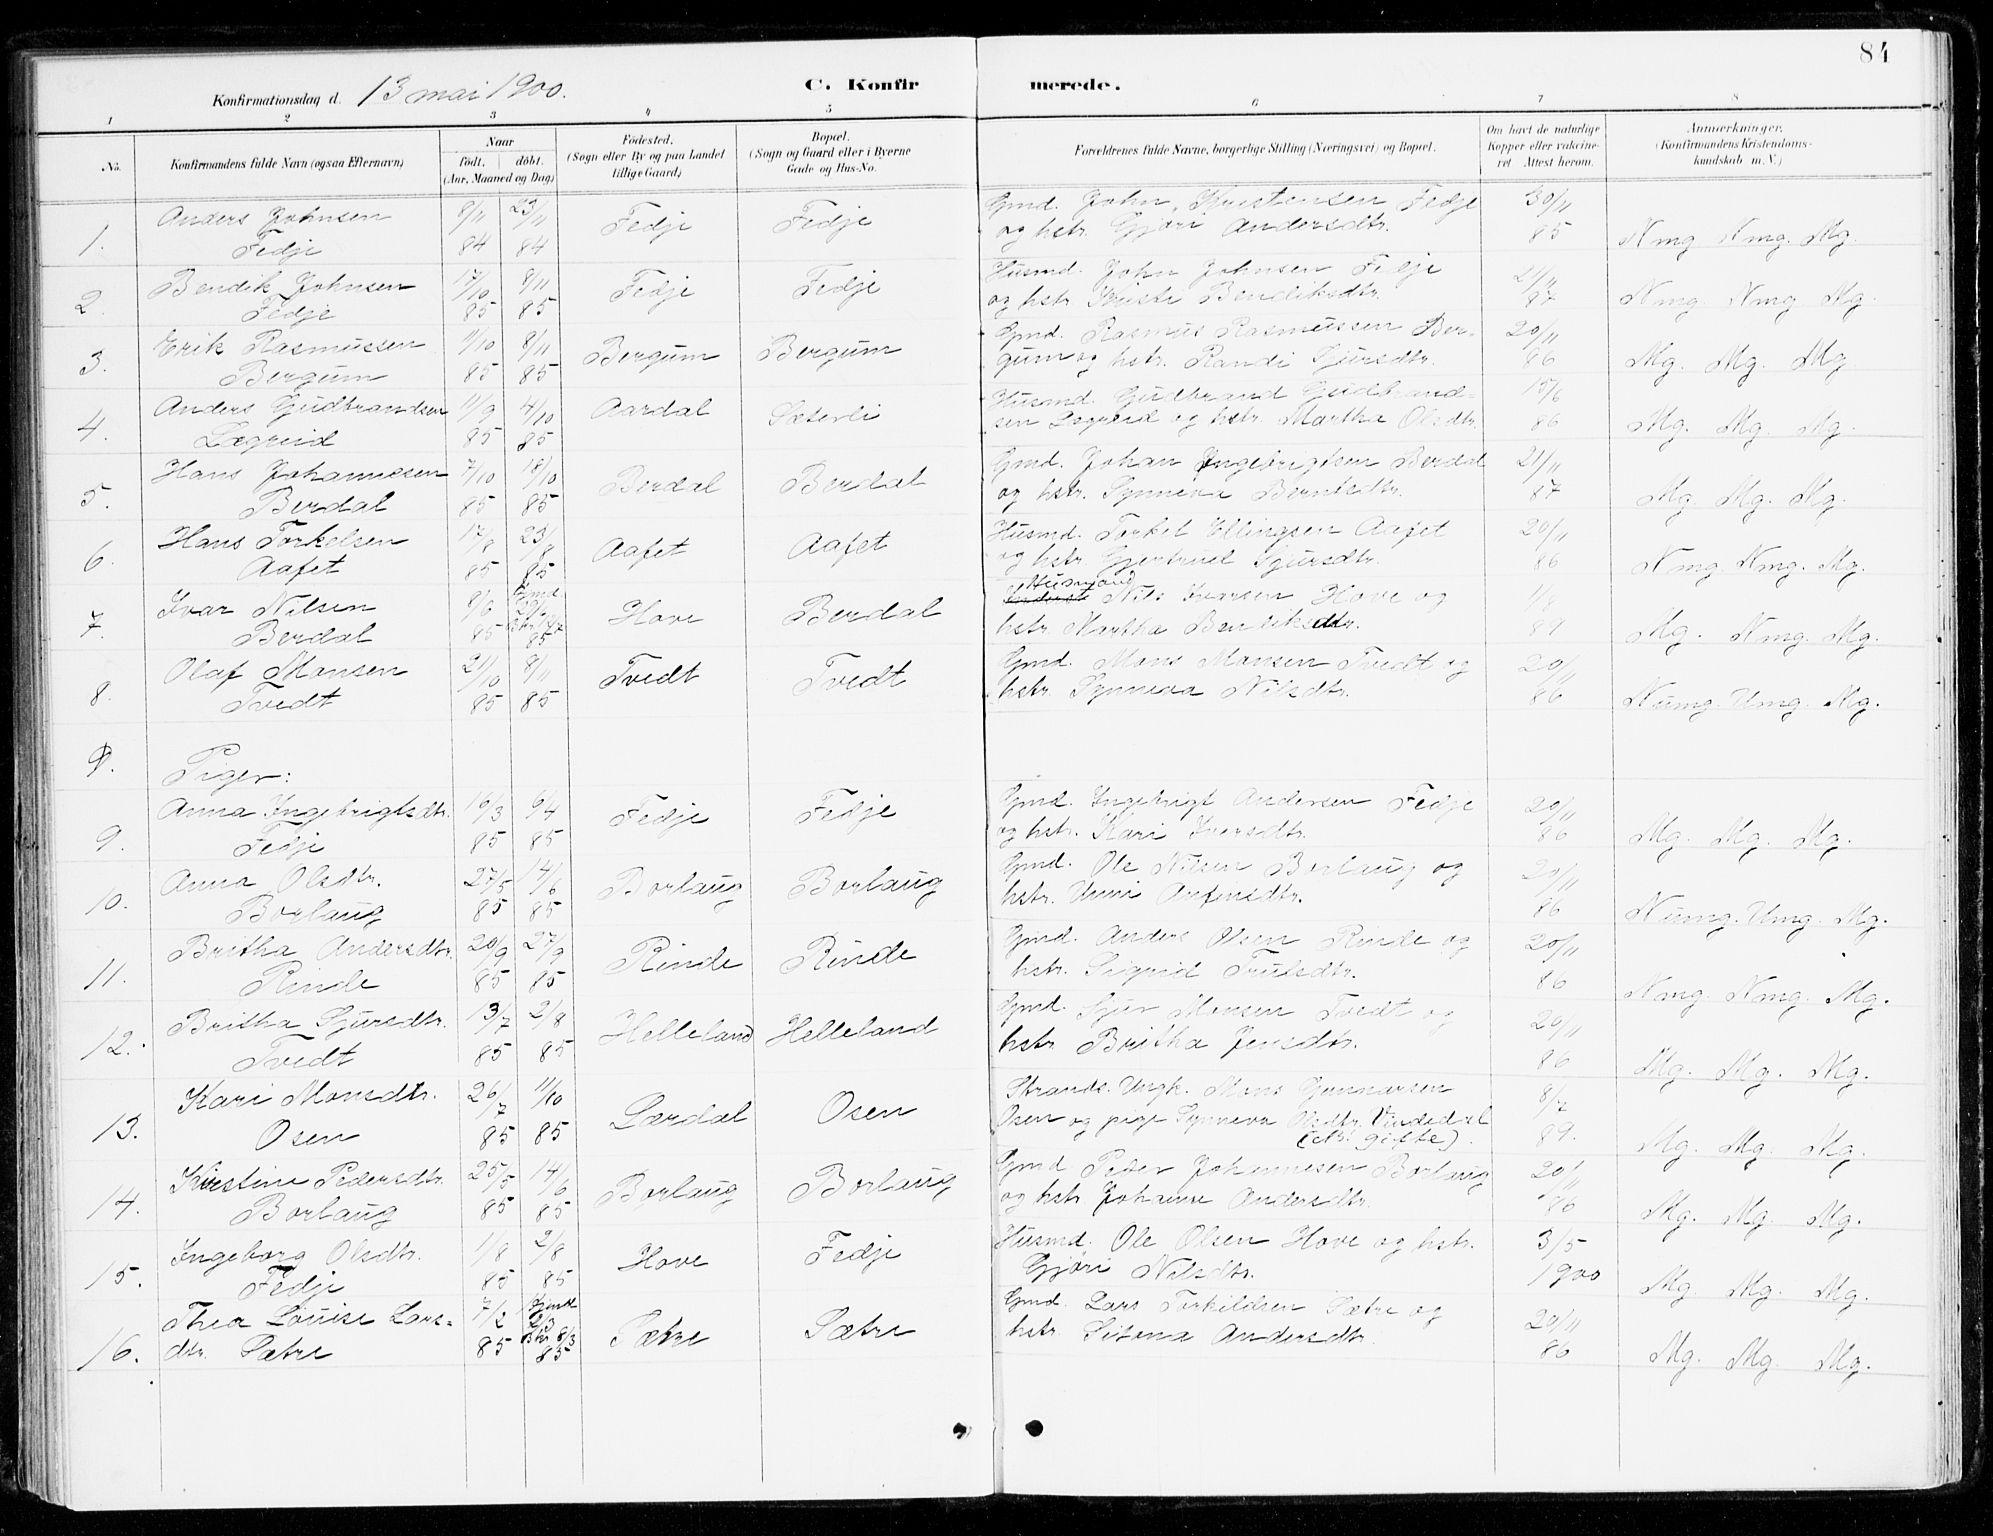 84
Konfirmationsdag d. 13 mai 1900.
C. Konfirmerede.
1 2 3 4 5 6 7 8
No.
Konfirmandens fulde Navn (ogsaa Efternavn)
Naar
født. døbt.
(Aar, Maaned og Dag)
Fødested.
(Sogn eller By og paa Landet
tillige Gaard)
Bopæl.
(Sogn og Gaard eller i Byerne
Gade og Hus-No.
Forældrenes fulde Navne, borgerlige Stilling (Næringsvei) og Bopæl.
Om havt de naturlige
Kopper eller vakcine-
ret Attest herom.
Anmærkninger.
(Konfirmandens Kristendoms-
kundskab m. V.)
1. Anders Johnsen 8/11 23/11 Fedje Fedje Gmd. John Kristensen Fedje 30/11
Fedje 84 84 og hstr. Gjøri Andersdtr. 85 Nmg Nmg. Mg.
2. Bendik Johnsen 17/10 8/11 Fedje Fedje Husmd. John Johnsen Fedje 21/11
Fedje 85 85 og hstr. Kristi Bendiksdtr. 87 Nmg. Nmg Mg.
3. Erik Rasmussen 11/10 8/11 Bergum Bergum Gmd. Rasmus Rasmussen Ber- 20/11
Bergum 85 85 gum og hstr. Randi Sjursdtr. 86 Mg. Mg. Mg
4. Anders Gudbrandsen 11/9 4/10 Aardal Sæterli Husmd. Gudbrand Gudbrand- 15/6
Lægreid 85 85 sen Lægreid og hstr. Martha Olsdtr. 86 Mg. Mg. Mg.
5. Hans Johannesen 7/10 18/10 Berdal Berdal Gmd. Johan Ingebrigtsen Berdal 21/11
Berdal 85 85 og hstr. Synneva Berntsdtr. 87 Mg. Mg. Mg.
6. Hans Torkelsen 17/8 23/8 Aafet Aafet Husmd. Torkel Ellingsen Aafet 20/11
Aafet 85 85 og hstr. Gjertrud Sjursdtr. 86 Nmg. Nmg. Mg.
7. Ivar Nilsen 8/6 Hove Berdal Husmand Nils Ivarsen Hove og 11/8
Berdal 85 85 hstr. Martha Bendiksdtr. 89 Mg. Nmg. Mg.
8. Olaf Monsen 21/10 8/11 Tvedt Tvedt Gmd. Mons Monsen Tvedt og 20/11
Tvedt 85 85 hstr. Synneva Nilsdtr. 86 Numg. Umg. Mg.
Piger:
9. Anna Ingebrigtsdtr. 16/3 6/4 Fedje Fedje Gmd. Ingebrigt Andersen Fedje 20/11
Fedje 85 85 og hstr. Kari Iversdtr. 86 Mg. Mg. Mg.
10. Anna Olsdtr. 27/5 14/6 Borlaug Borlaug Gmd. Ole Nilsen Borlaug og 20/11
Borlaug 85 85 hstr. Unni Anfinsdtr. 86 Numg. Umg. Mg.
11. Britha Andersdtr. 20/9 27/9 Rinde Rinde Gmd. Anders Olsen Rinde og 20/11
Rinde 85 85 hstr. Sigrid Trulsdtr. 86 Nmg. Nmg. Mg.
12. Britha Sjursdtr. 13/7 2/8 Helleland Helleland Gmd. Sjur Monsen Tvedt og 20/11
Tvedt 85 85 hstr. Britha Jensdtr. 86 Mg. Mg. Mg.
13. Kari Monsdtr. 26/7 11/10 Lærdal Osen Strands. Ungk. Mons Gunnarsen 8/7
Osen 85 85 Osen og pige Synneva Olsdtr. Vindedal 89. Mg. Mg. Mg.
gifte).
14. Kirstine Pedersdtr. 25/5 14/6 Borlaug Borlaug Gmd Peder Johannesen Borlaug 20/11
Borlaug 85 85 og hstr Johanne Andersdtr. 86 Mg. Mg. Mg.
15. Ingeborg Olsdtr. 1/8 2/8 Hove Fedje Husmd. Ole Olsen Hove og hstr. 3/5
Fedje 85 85 Gjøri Nilsdtr. 1900 Mg. Mg. Mg.
16. Thea Louise Lars- 7/2 Hjemd. 2/3 Sætre Sætre Gmd. Lars Torkildsen Sætre og 20/11
dtr. Sætre 85 8/3 85 hstr. Andersdtr. 86 Mg. Mg. Mg.